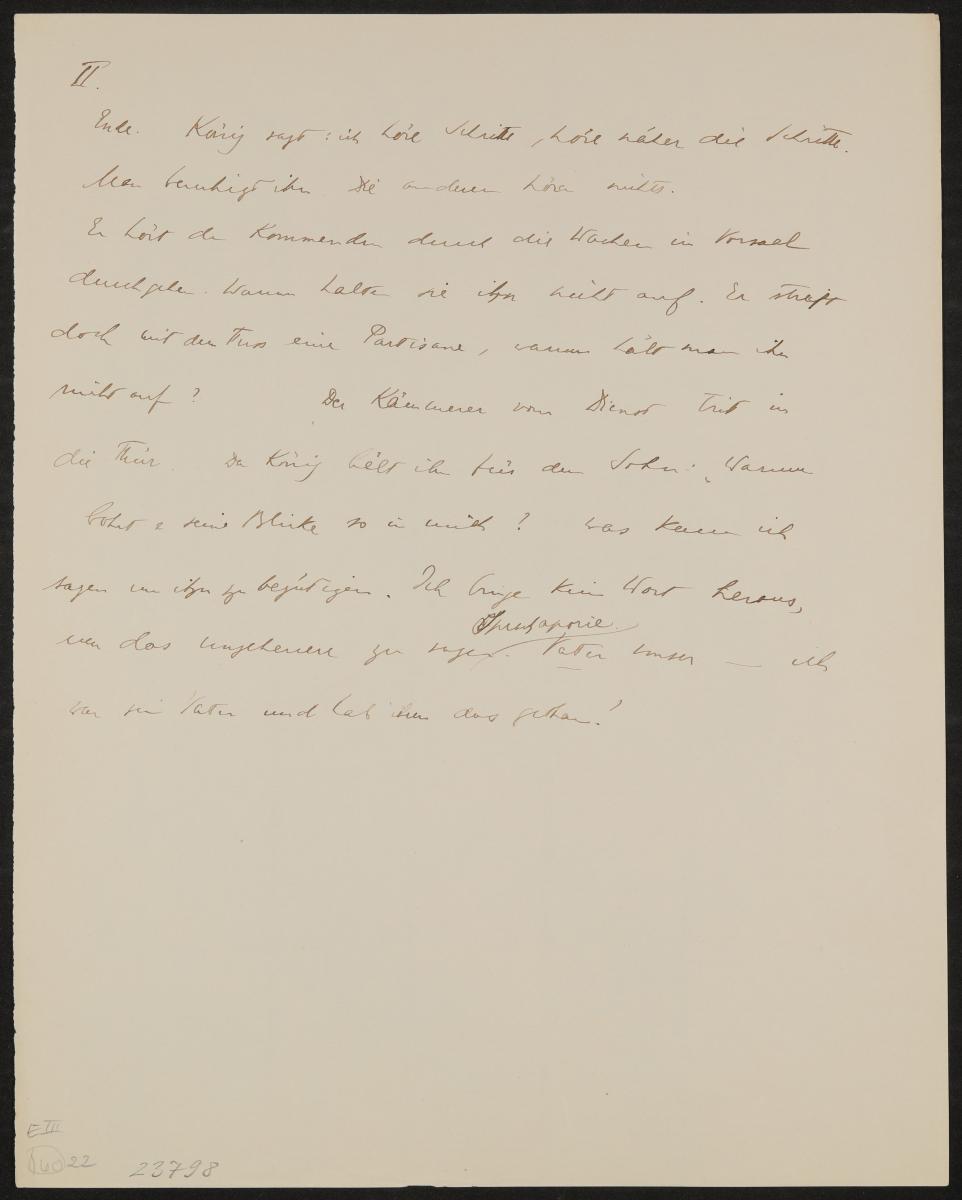 II.
Ende. König sagt: ich höre Schritte, höre näher die Schritte.
Man beruhigt ihn. Die anderen hören nichts.
Er hört den Kommenden durch die Wachen im Vorsaal
durchgehen. Warum halten sie ihn nicht auf. Er streift
doch mit dem Fuss eine Partisane, warum hält man ihn
nicht auf? Der Kämmerer vom Dienst tritt in
die Thür. Der König hält ihn für den Sohn: „Warum
bohrt er seine Blicke so in mich? was kann ich
sagen um ihn zu begütigen. Ich bringe kein Wort heraus,
um das ungeheuere zu sagen. Vater unser — ich
war sein Vater und hab ihm das gethan!
E III
22
23798